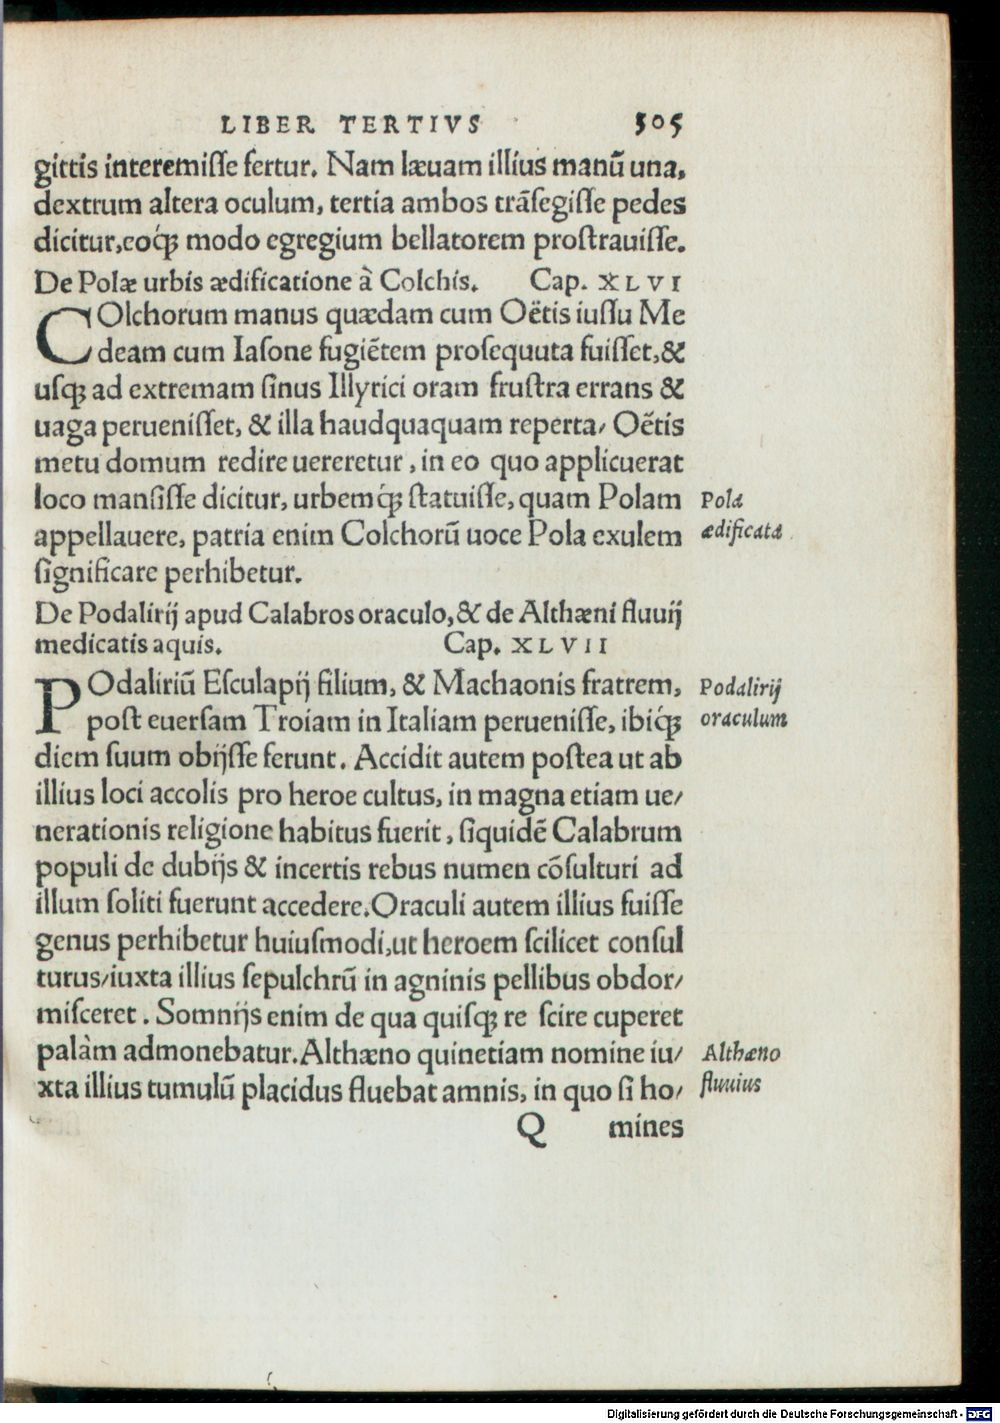 LIBER TERTIVS 305
gittis interemiſſe fertur. Nam læuam illius manū una,
dextrum altera oculum, tertia ambos trāſegiſſe pedes
dicitur, eoq́ꝫ modo egregium bellatorem proſtrauiſſe.
De Polæ urbis ædificatione à Colchis. Cap. XLVI
COlchorum manus quædam cum Oëtis iuſſu Me
deam cum Iaſone fugiētem proſequuta fuiſſet, &
uſqꝫ ad extremam ſinus Illyrici oram fruſtra errans &
uaga perueniſſet, & illa haudquaquam reperta/ Oëtis
metu domum redire uereretur, in eo quo applicuerat
loco manſiſſe dicitur, urbemq́ꝫ ſtatuiſſe, quam Polam
Pola
appellauere, patria enim Colchorū uoce Pola exulem
ædificata
ſignificare perhibetur.
De Podalirij apud Calabros oraculo, & de Althæni fluuij
medicatis aquis. Cap. XLVII
POdaliriū Eſculapij filium, & Machaonis fratrem,
Podalirij
poſt euerſam Troiam in Italiam perueniſſe, ibiq́ꝫ
oraculum
diem ſuum obijſſe ferunt. Accidit autem poſtea ut ab
illius loci accolis pro heroe cultus, in magna etiam ue/
nerationis religione habitus fuerit, ſiquidē Calabrum
populi de dubijs & incertis rebus numen cōſulturi ad
illum ſoliti fuerunt accedere. Oraculi autem illius fuiſſe
genus perhibetur huiuſmodi, ut heroem ſcilicet conſul
turus/iuxta illius ſepulchrū in agninis pellibus obdor/
miſceret. Somnijs enim de qua quiſqꝫ re ſcire cuperet
palàm admonebatur. Althæno quinetiam nomine iu/
Althæno
xta illius tumulū placidus fluebat amnis, in quo ſi ho/
fluuius
Q mines
Digitalisierung gefördert durch die Deutsche Forschungsgemeinschaft - DFG